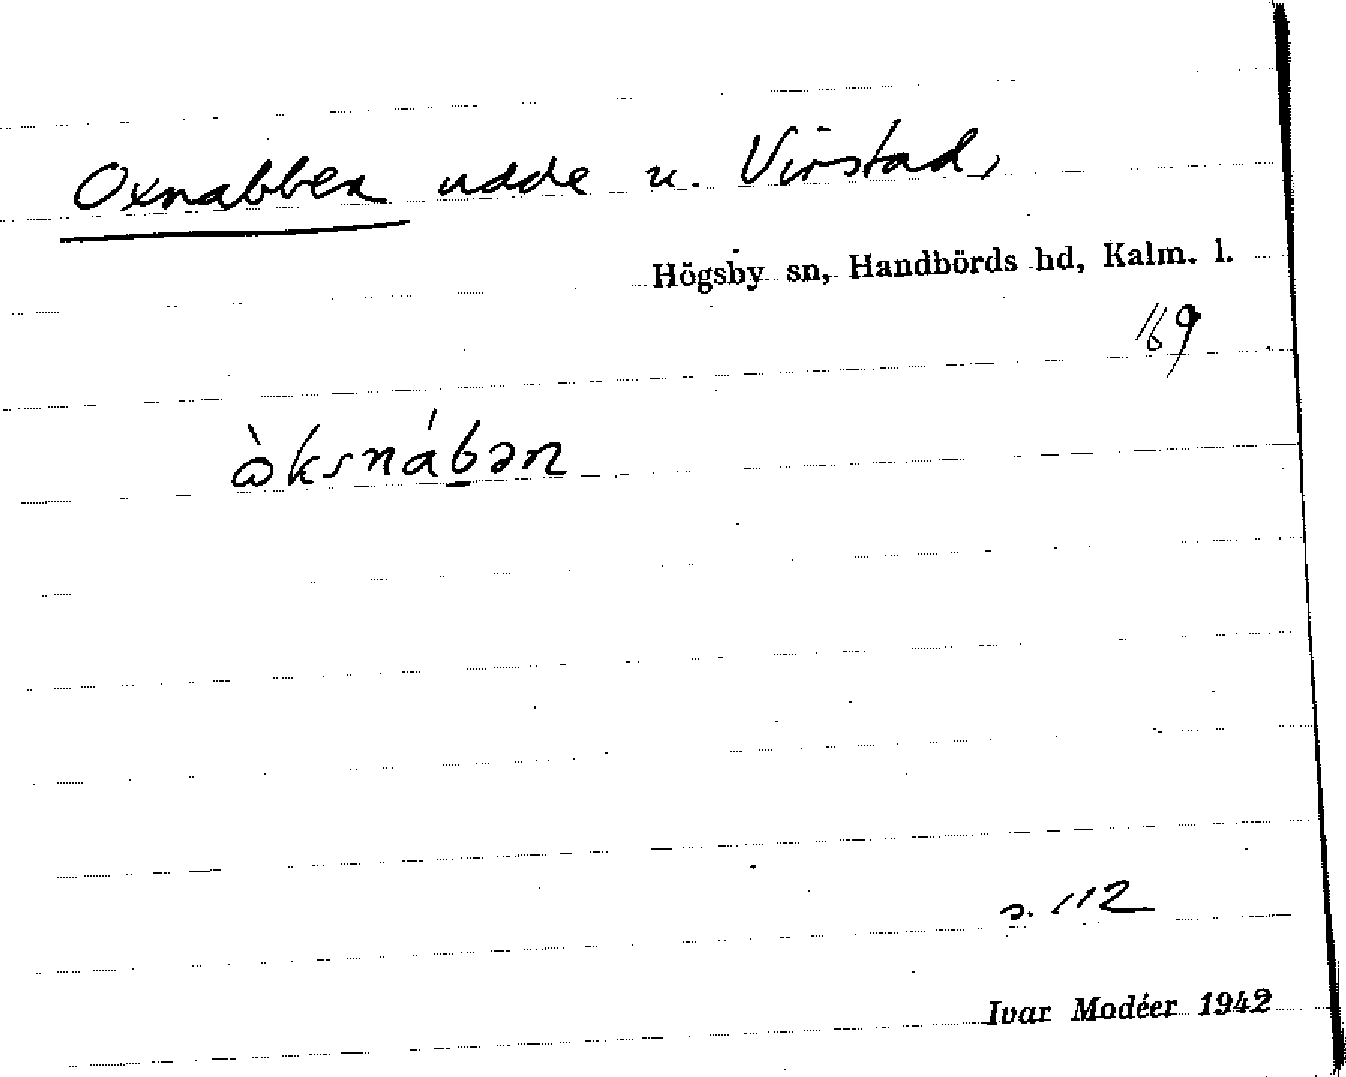 Oxnabben udde u. Virstad,
Högsby sn, Handbörds hd, Kalm. l.
169
ὼksnáb̲ən
s. 112
Ivar Modéer 1942